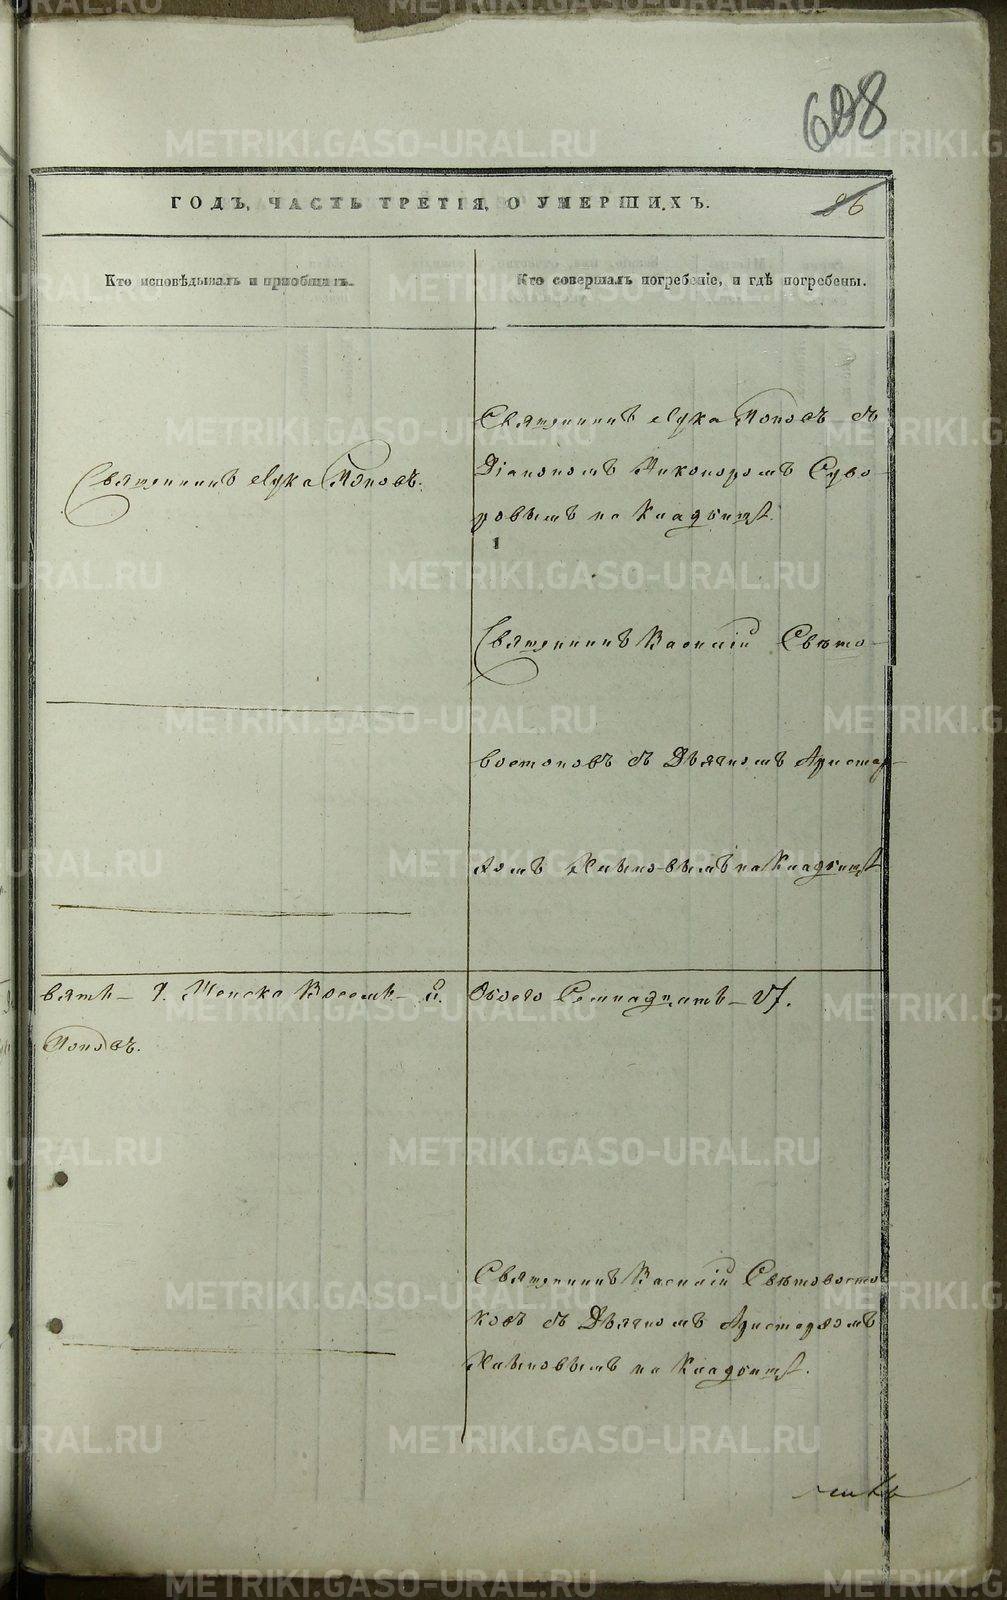 698
ГОДЪ, ЧАСТЬ ТРЕТІЯ, О УМЕРШИХЪ.
86
Кто исповѣдывалъ и пріобщалъ.
Кто совершалъ погребеніе, и гдѣ погребены.
Священникъ Лука Поповъ.
Священникъ Лука Поповъ съ
Діакономъ Никоноромъ Суво-
ровымъ на Кладбищѣ.
Священникъ Василій Свѣто-
востоковъ съ Дьячкомъ Аристар-
хомъ Хлыновымъ на Кладбищѣ
вять – 9. Женска Восемь – 8.
Поповъ.
Обоего Семнадцать – 17.
Священникъ Василій Свѣтовосто
ковъ съ Дьячкомъ Аристархомъ
Хлыновымъ на Кладбищѣ.
METRIKI.GASO-URAL.RU